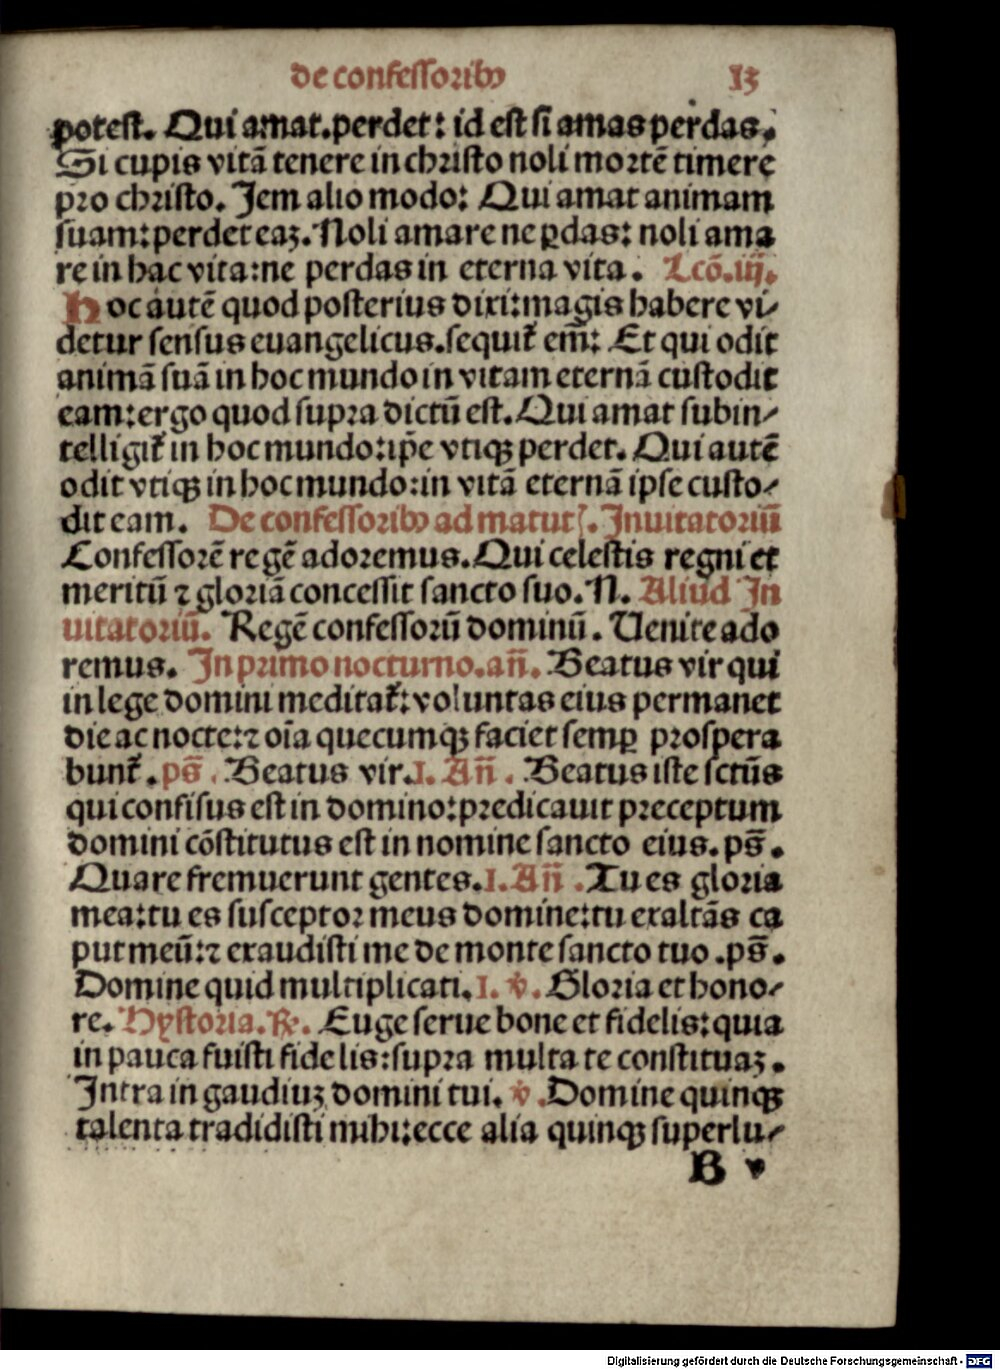 de confessoribꝰ 13
potest. Qui amat.perdet: id est si amas perdas.
Si cupis vitā tenere in christo noli mortē timere
pro christo. Jem alio modo: Qui amat animam
suam:perdet eaꝫ. Noli amare ne ꝑdas: noli ama
re in hac vita:ne perdas in eterna vita. Lcō.iij.
Hoc autē quod posterius dixi:magis habere vi⸗
detur sensus euangelicus.sequit᷑ em̄: Et qui odit
animā suā in hoc mundo in vitam eternā custodit
eam:ergo quod supra dictū est. Qui amat subin⸗
telligit᷑ in hoc mundo:ip̄e vtiqꝫ perdet. Qui autē
odit vtiqꝫ in hoc mundo:in vitā eternā ipse custo⸗
dit eam. De confessoribꝰ ad matut᷑. Jnuitatoriū
Confessorē regē adoremus. Qui celestis regni et
meritū ⁊ gloriā concessit sancto suo. N. Aliud Jn
uitatoriū. Regē confessorū dominū. Uenite ado
remus. Jn primo nocturno.an̄. Beatus vir qui
in lege domini meditat᷑:voluntas eius permanet
die ac nocte:⁊ oīa quecumqꝫ faciet semꝑ prospera
bunt᷑. ps̄. Beatus vir.I. An̄. Beatus iste sctūs
qui confisus est in domino:predicauit preceptum
domini cōstitutus est in nomine sancto eius. ps̄.
Quare fremuerunt gentes.I. An̄. Tu es gloria
mea:tu es susceptor meus domine:tu exaltās ca
put meū:⁊ exaudisti me de monte sancto tuo. ps̄.
Domine quid multiplicati.I. ℣. Gloria et hono⸗
re. Hystoria. ℟. Euge serue bone et fidelis:quia
in pauca fuisti fidelis:supra multa te constituaꝫ.
Jntra in gaudiuꝫ domini tui. ℣. Domine quinqꝫ
talenta tradidisti mihi:ecce alia quinqꝫ superlu⸗
B v
Digitalisierung gefördert durch die Deutsche Forschungsgemeinschaft - DFG